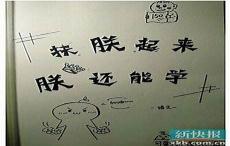 扶朕起来
朕还能学
新快报
xkb.com.cn